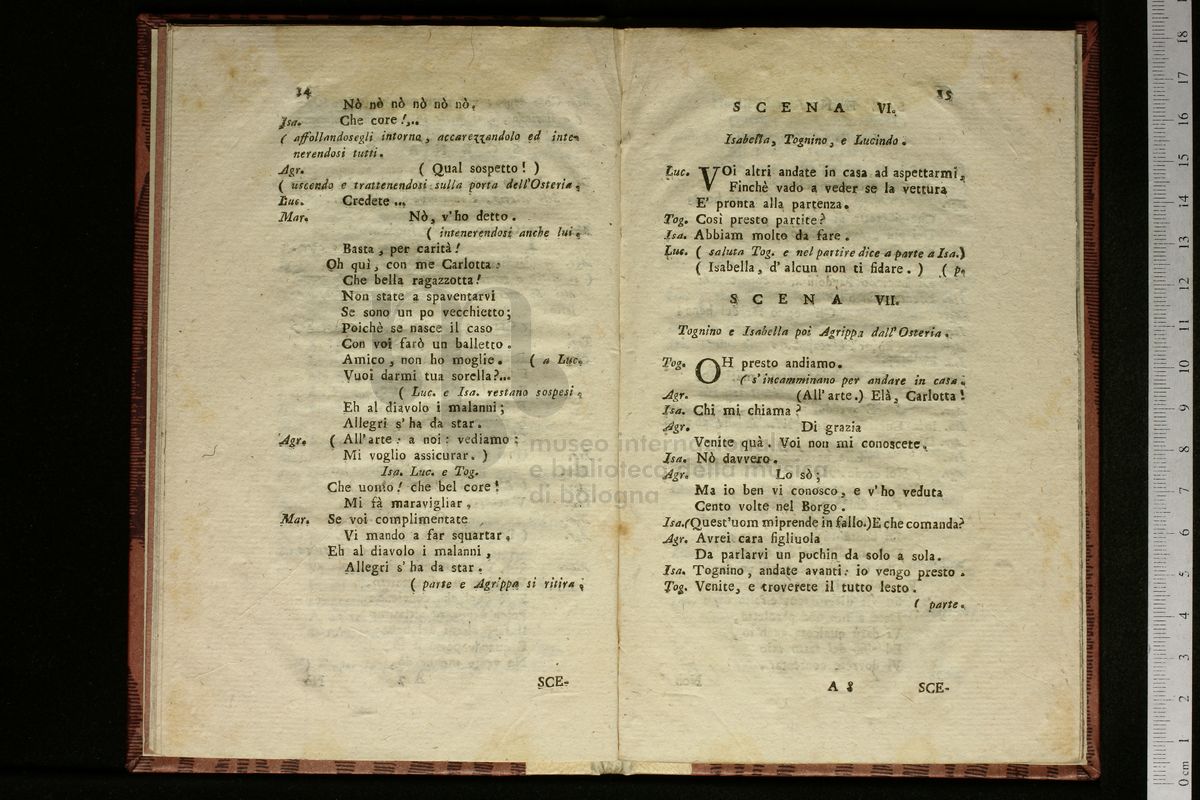 14
Nò nò nò nò nò nò.
Isa. Che core!...
( affollandosegli intorno, accarezzandolo ed inte-
nerendosi tutti.
Agr. ( Qual sospetto! )
( uscendo e trattenendosi sulla porta dell'Osteria.
Luc. Credete ...
Mar. Nò, v'ho detto.
( intenerendosi anche lui.
Basta, per carità!
Oh quì, con me Carlotta:
Che bella ragazzotta!
Non state a spaventarvi
Se sono un po vecchietto;
Poichè se nasce il caso
Con voi farò un balletto.
Amico, non ho moglie. ( a Luc.
Vuoi darmi tua sorella?...
( Luc. e Isa. restano sospesi.
Eh al diavolo i malanni;
Allegri s'ha da star.
Agr. ( All'arte: a noi: vediamo:
Mi voglio assicurar. )
Isa. Luc. e Tog.
Che uomo! che bel core!
Mi fà maravigliar.
Mar. Se voi complimentate
Vi mando a far squartar.
Eh al diavolo i malanni,
Allegri s'ha da star.
( parte e Agrippa si ritira.
SCE-
15
SCENA VI.
Isabella, Tognino, e Lucindo.
Luc. VOi altri andate in casa ad aspettarmi,
Finchè vado a veder se la vettura
E' pronta alla partenza.
Tog. Così presto partite?
Isa. Abbiam molto da fare.
Luc. ( saluta Tog. e nel partire dice a parte a Isa.)
( Isabella, d'alcun non ti fidare. ) ( p.
SCENA VII.
Tognino e Isabella poi Agrippa dall'Osteria.
Tog. OH presto andiamo.
( s'incamminano per andare in casa.
Agr. (All'arte.) Elà, Carlotta!
Isa. Chi mi chiama?
Agr. Di grazia
Venite quà. Voi non mi conoscete.
Isa. Nò davvero.
Agr. Lo sò;
Ma io ben vi conosco, e v'ho veduta
Cento volte nel Borgo.
Isa.(Quest'uom miprende in fallo.)E che comanda?
Agr. Avrei cara figliuola
Da parlarvi un pochin da solo a sola.
Isa. Tognino, andate avanti: io vengo presto.
Tog. Venite, e troverete il tutto lesto.
( parte.
A 8 SCE-
museo interna
e biblioteca della musica
di bologna